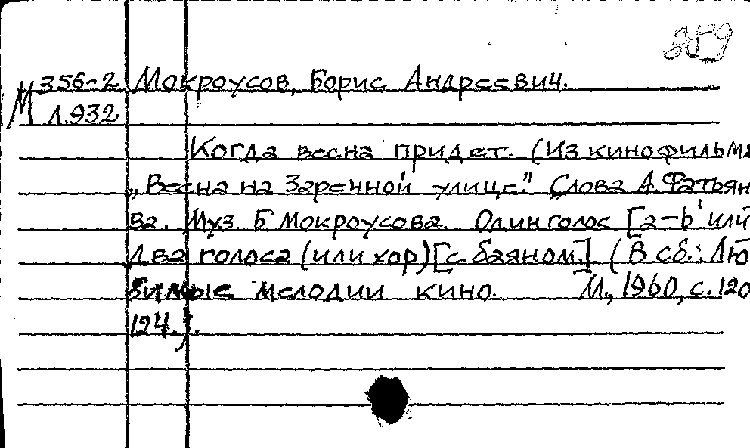 359
М 356-2 Мокроусов, Борис Андреевич.
Л.932
Когда весна придет. (Из кинофильма
„Весна на Заречной улице". Слова А. Фатьян
ва. Муз. Б Мокроусова. Один голос [a-b' или
два голоса (или хор) [с баяном.] (В сб.: Лю
бимые мелодии кино. М., 1960, с. 120
124.).